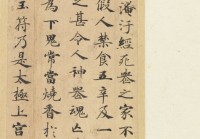 淹汙經死喪之家不
假人禁食五辛及一
之甚令人神器魂亡
為下鬼常當燒香於
玉符乃是太極上宮